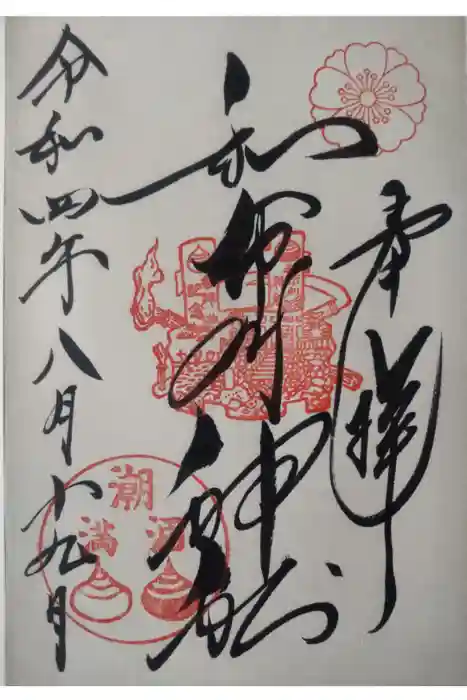 奉拝
和布刈神社
令和四年八月廿九日
潮
涸
満